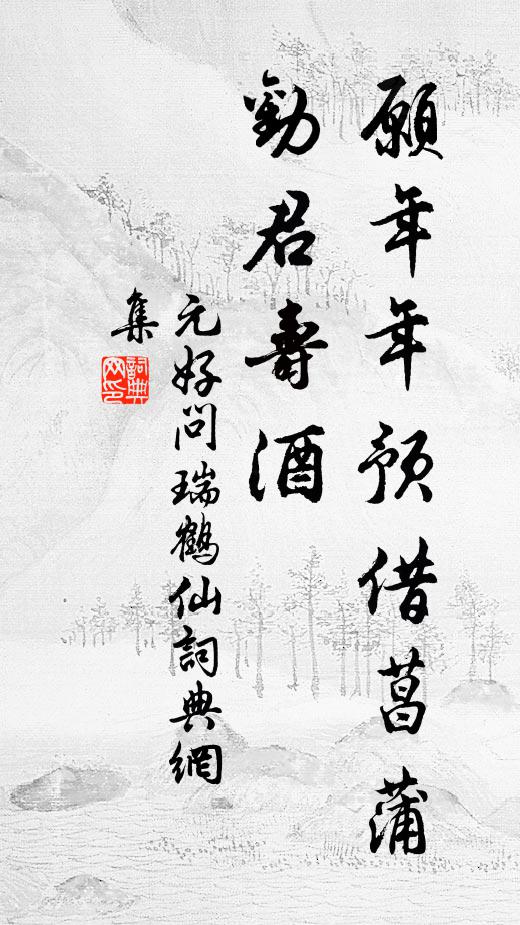 願年年預借菖蒲
勸君壽酒
元好問瑞鶴仙詞典網
集
詞典
网印